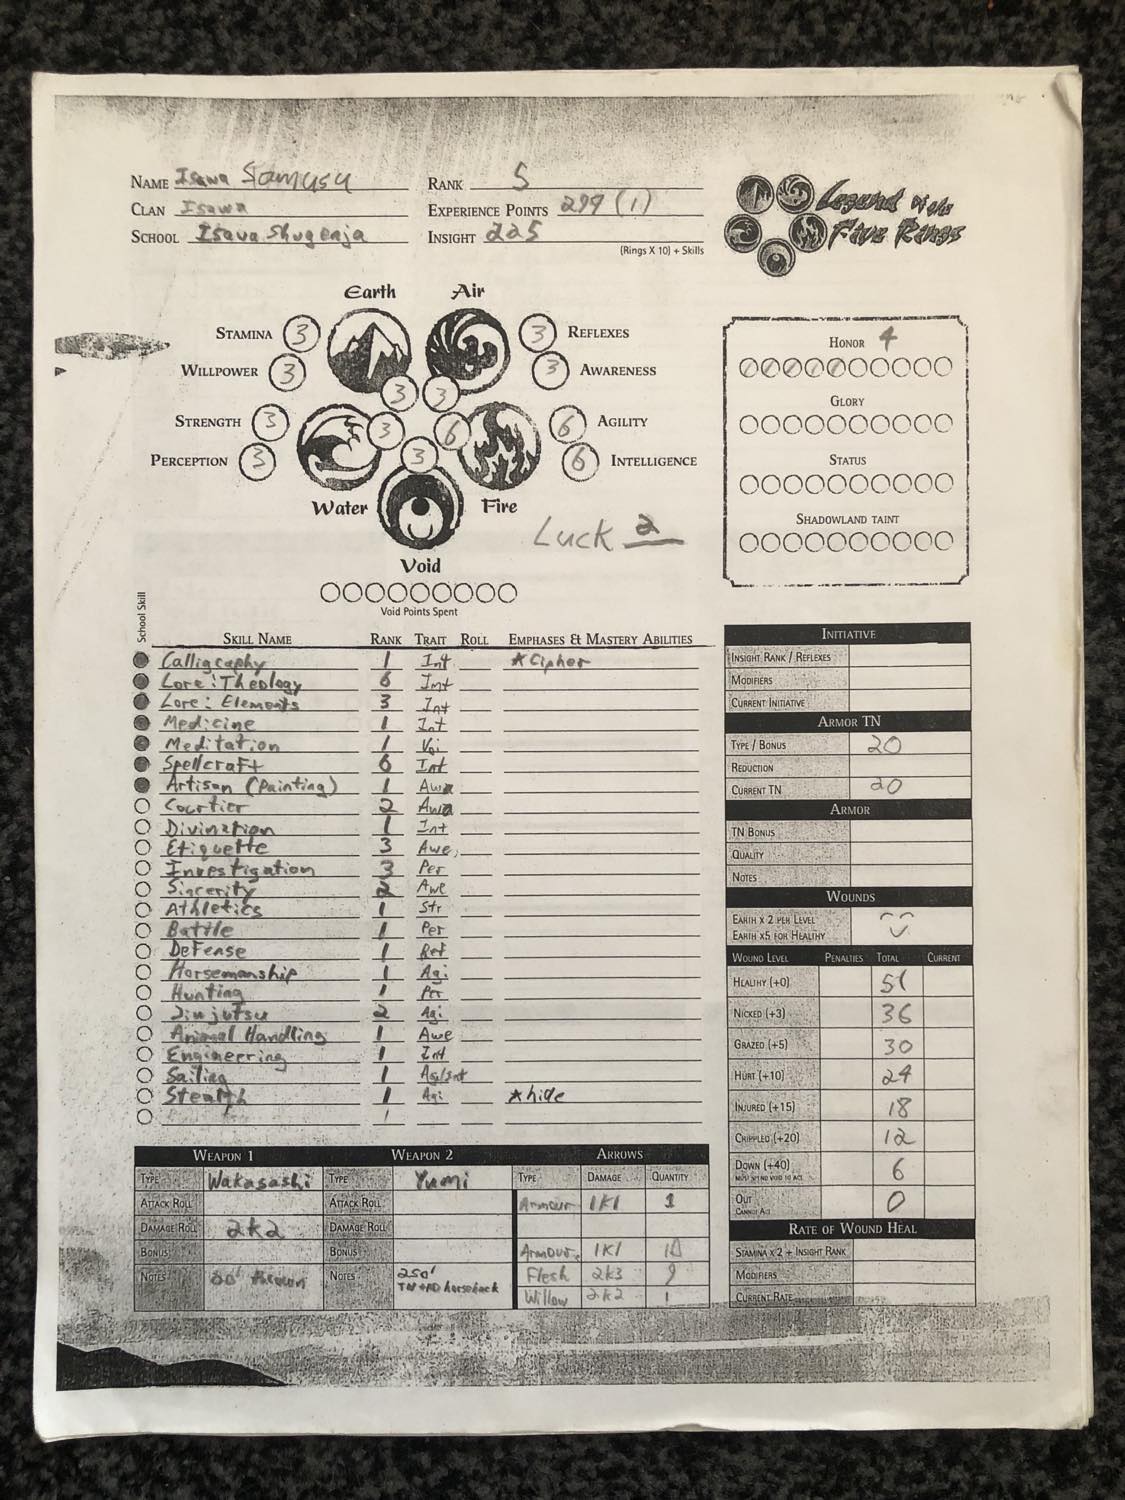 NAME Isawa Stamusu
RANK 5
CLAN Isawa
EXPERIENCE POINTS 299 (1)
SCHOOL Isawa Shugenja
INSIGHT 225
(Rings X 10) + Skills
Legend of the
Five Rings
Earth Air
STAMINA 3
3 REFLEXES
WILLPOWER 3
3 AWARENESS
3 3
STRENGTH 3
3 6
6 AGILITY
PERCEPTION 3
3
6 INTELLIGENCE
Water Fire
Void
Luck 2
Void Points Spent
HONOR 4
GLORY
STATUS
SHADOWLAND TAINT
School Skill
SKILL NAME RANK TRAIT ROLL EMPHASES & MASTERY ABILITIES
Calligraphy 1 Int *Cipher
Lore: Theology 6 Int
Lore: Elements 3 Int
Medicine 1 Int
Meditation 1 Voi
Spellcraft 6 Int
Artisan (Painting) 1 Awa
Courtier 2 Awa
Divination 1 Int
Etiquette 3 Awe
Investigation 3 Per
Sincerity 2 Awe
Athletics 1 Str
Battle 1 Per
Defense 1 Ref
Horsemanship 1 Agi
Hunting 1 Per
Jiujutsu 2 Agi
Animal Handling 1 Awe
Engineering 1 Int
Sailing 1 Agi/Int
Stealth 1 Agi *hide
INITIATIVE
INSIGHT RANK / REFLEXES
MODIFIERS
CURRENT INITIATIVE
ARMOR TN
TYPE / BONUS 20
REDUCTION
CURRENT TN 20
ARMOR
TN BONUS
QUALITY
NOTES
WOUNDS
EARTH X 2 PER LEVEL
EARTH X5 FOR HEALTHY
WOUND LEVEL PENALTIES TOTAL CURRENT
HEALTHY (+0) 51
NICKED (+3) 36
GRAZED (+5) 30
HURT (+10) 24
INJURED (+15) 18
CRIPPLED (+20) 12
DOWN (+40) 6
MUST SPEND VOID TO ACT
OUT 0
CANNOT ACT
RATE OF WOUND HEAL
STAMINA X 2 + INSIGHT RANK
MODIFIERS
CURRENT RATE
WEAPON 1 WEAPON 2 ARROWS
TYPE Wakasashi TYPE Yumi TYPE DAMAGE QUANTITY
ATTACK ROLL ATTACK ROLL Armour 1K1 1
DAMAGE ROLL 2K2 DAMAGE ROLL
BONUS BONUS Armour 1K1
NOTES 20' thrown NOTES 250' Flesh 2K3 9
horseback
Willow 2K2 1